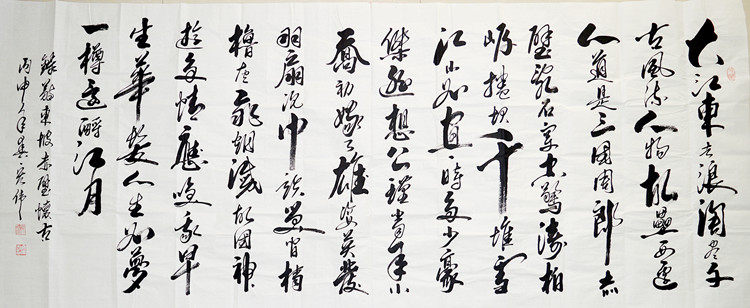 大江東去浪淘盡千
古風流人物故壘西邊
人道是三國周郎赤
壁亂石穿空驚濤拍
岸捲起千堆雪
江山如畫一時多少豪
傑遙想公瑾當年小
喬初嫁了雄姿英發
羽扇綸巾談笑間檣
櫓灰飛煙滅故國神
遊多情應笑我早
生華髮人生如夢
一樽還酹江月
錄蘇東坡赤壁懷古
丙申年